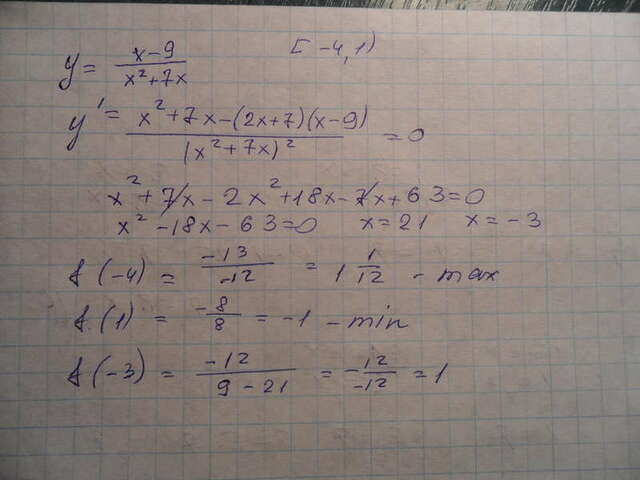 y = (x-9)/(x²+7x) [-4,1)
y' = (x²+7x-(2x+7)(x-9))/(x²+7x)² = 0
x²+7x-2x²+18x-7x+63=0
x²-18x-63=0 x=21 x=-3
f(-4) = -13/-12 = 1 1/12 - max
f(1) = -8/8 = -1 - min
f(-3) = -12/(9-21) = -12/-12 = 1